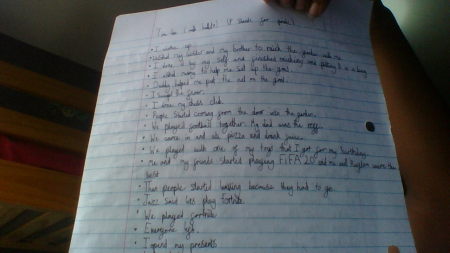 • I woke up
• I asked my sister and my brother to mulch the garden with me.
• I done it by my self and finished mulching and putting it in a bag
• I asked mum to help me set up the goal.
• Daddy helped me put the net on the goal.
• I swept the floor.
• People started coming from the door into the garden.
• We played football together. My dad was the reff.
• We came in and ate pizza and drank juice.
• We played with one of my toys that I got for my birthday.
• Me and my friends started playing FIFA 20 and me and were the
best
• Then people started leaving because they had to go.
• Jazz said lets play fortnite.
• We played fortnite
• Everyone left.
• I opend my presents